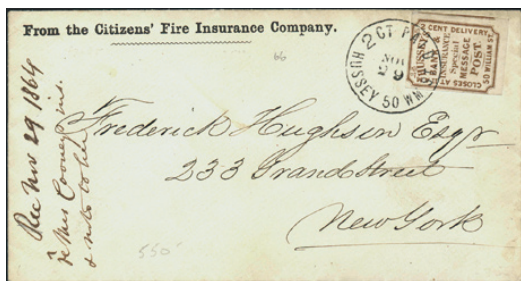 From the Citizens' Fire Insurance Company.
66
HUSSEY 50 WM
2 CT
NOV
29
2 CENT DELIVERY
HUSSEY'S
BANK &
INSURANCE
Special
MESSAGE
POST
50 WILLIAM ST.
CLOSES AT
Rec Nov 29 1864
Frederick Hughson Esqr
233 Grand Street
New York
550